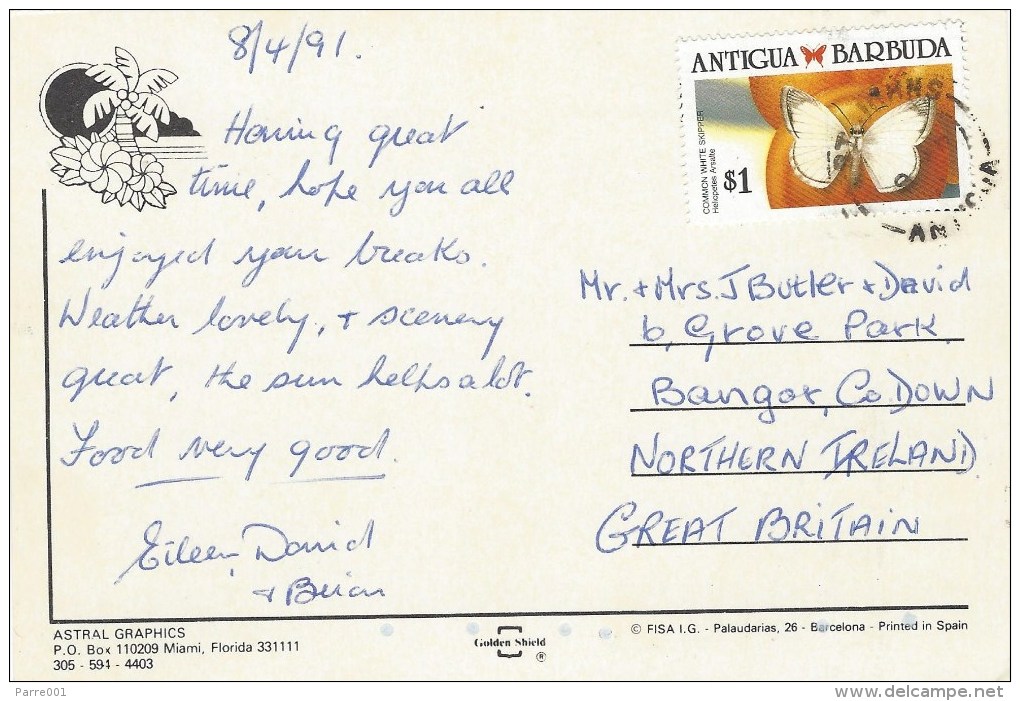 8/4/91.
Having great
time, hope you all
enjoyed your breaks.
Weather lovely, + scenery
great, the sun helps a lot.
Food very good.
Eileen, David
+ Brian
ANTIGUA BARBUDA
COMMON WHITE SKIPPER
Heliopetes Arsalte
$1
ANTIGUA
Mr. + Mrs. J Butler + David
6, Grove Park,
Bangor, Co. DOWN
NORTHERN IRELAND
GREAT BRITAIN
ASTRAL GRAPHICS
P.O. Box 110209 Miami, Florida 331111
305 - 594 - 4403
Golden Shield
®
© FISA I.G. - Palaudarias, 26 - Barcelona - Printed in Spain
Parre001
delcampe.net